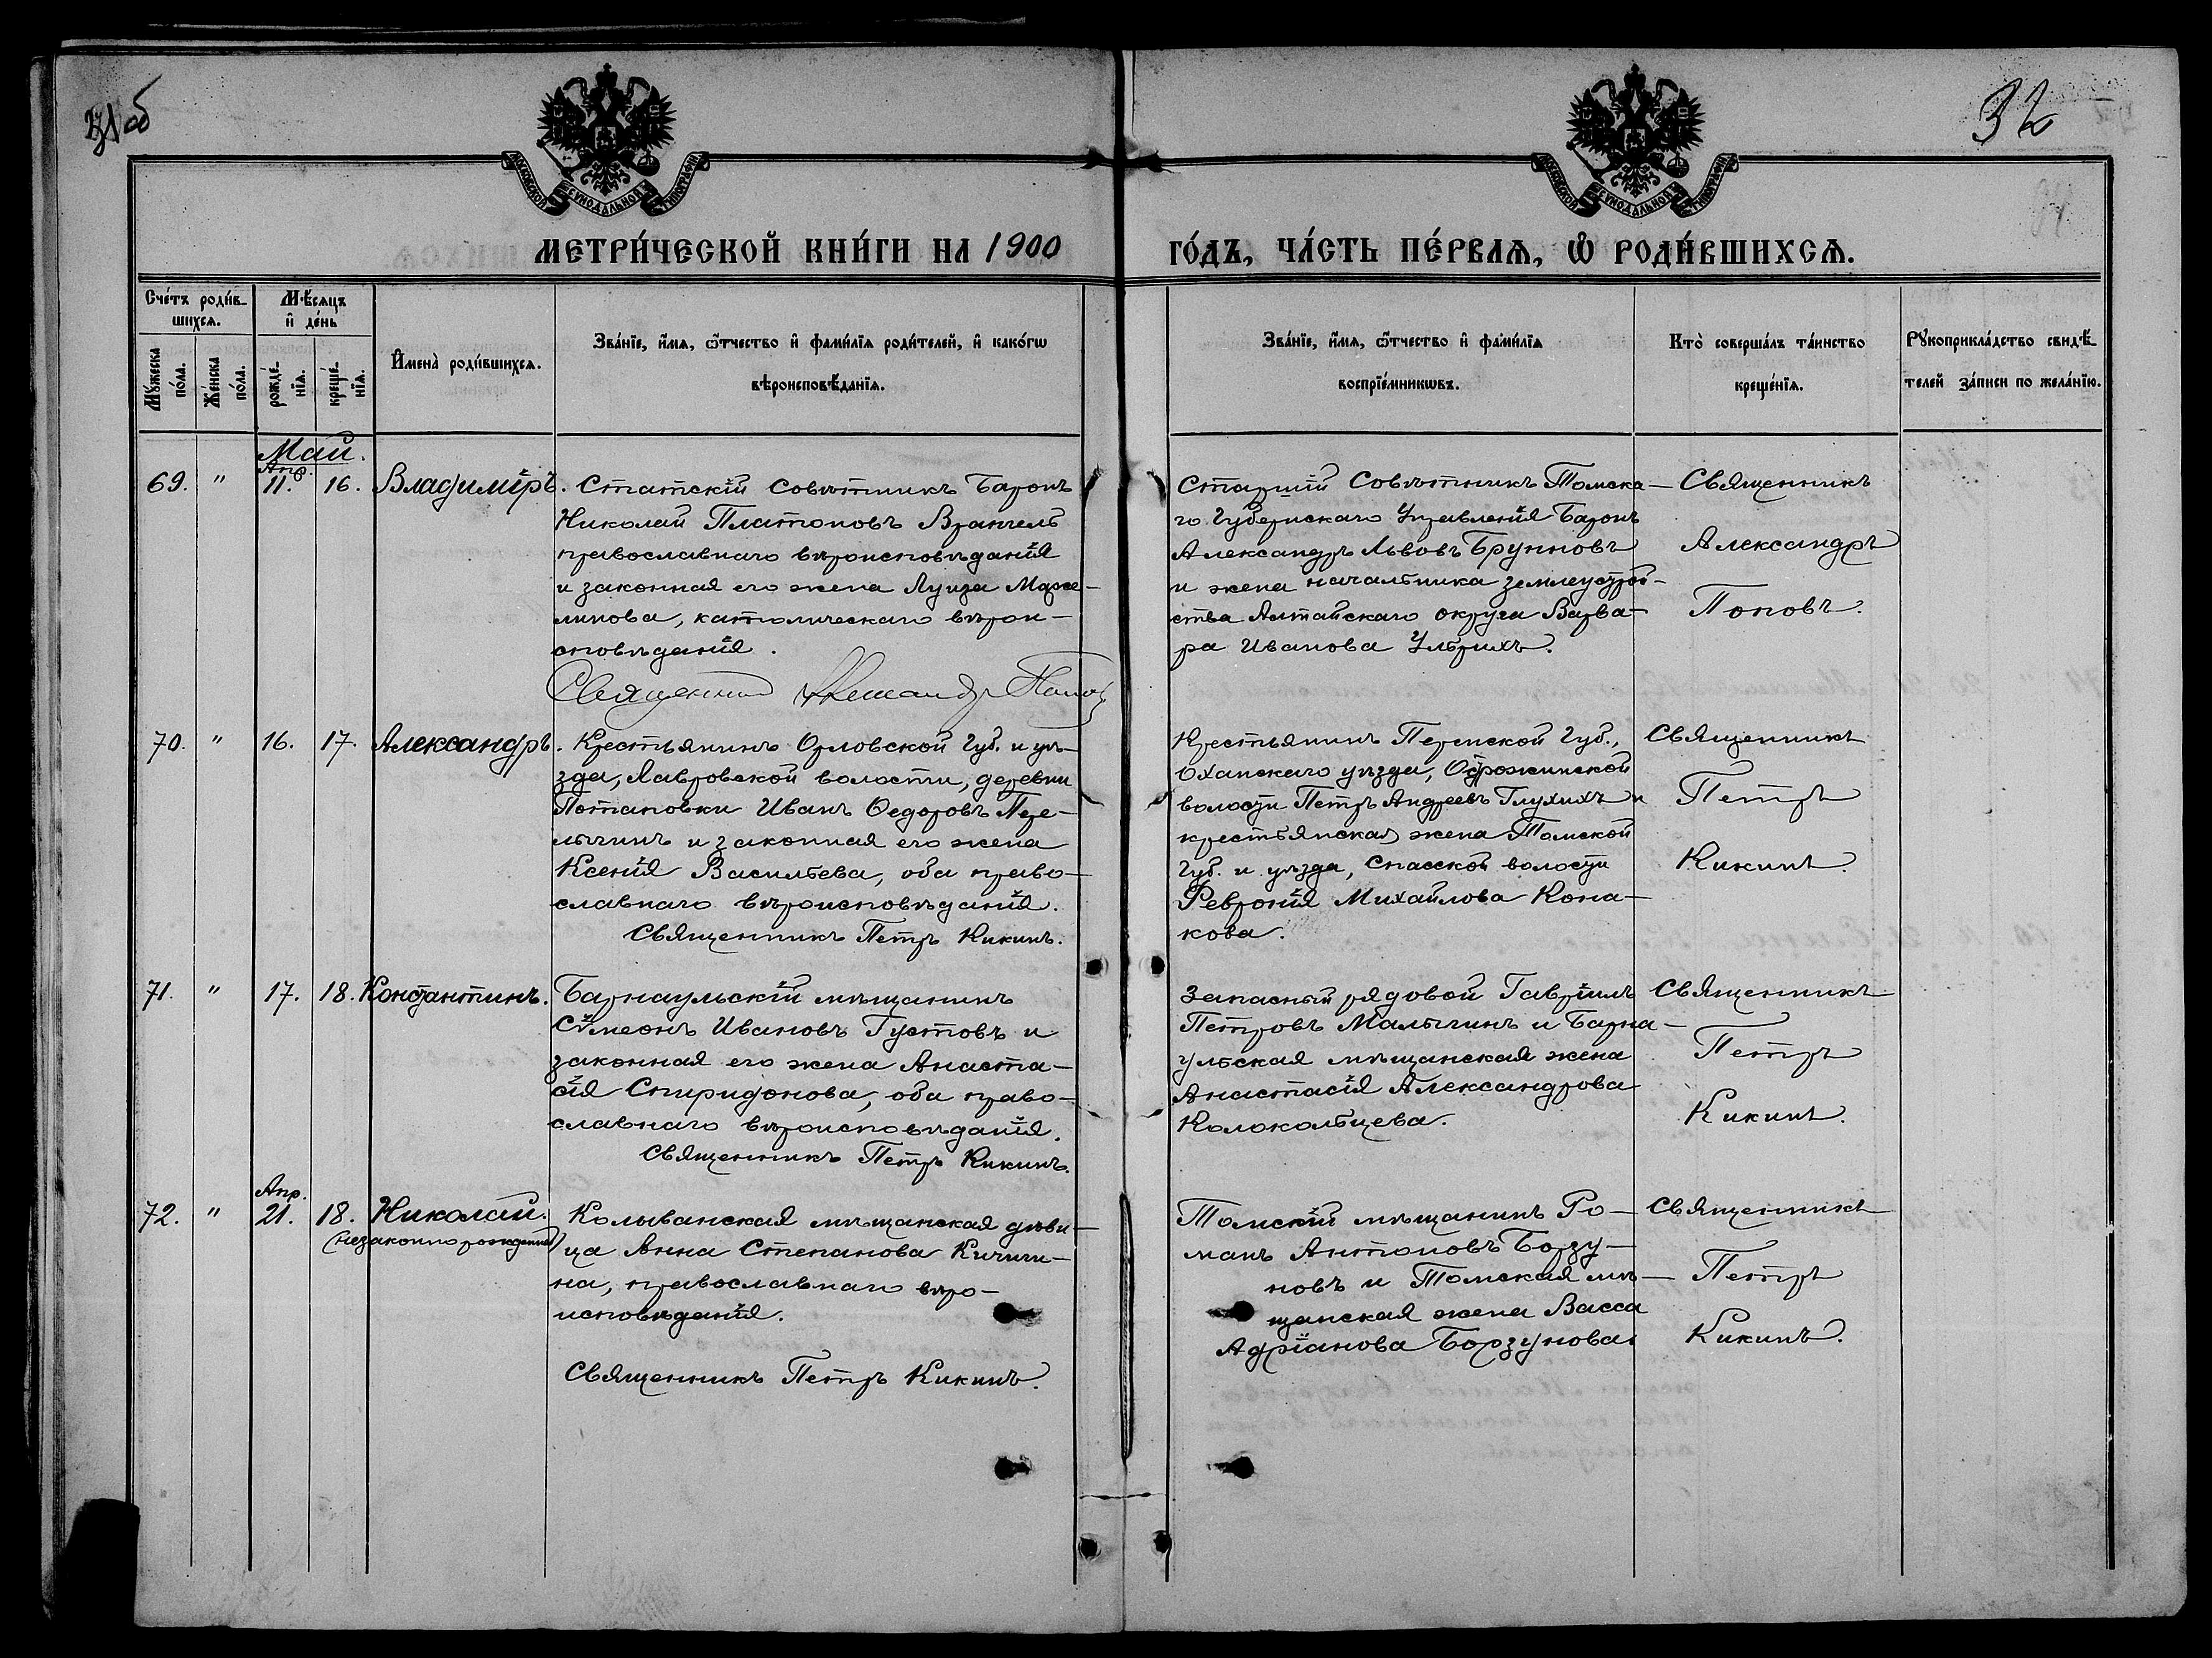 об
32
МОСКОВСКОЙ СѴНОДАЛЬНОЙ ТИПОГРАФІИ
МОСКОВСКОЙ СѴНОДАЛЬНОЙ ТИПОГРАФІИ
МЕТРИ́ЧЕСКОЙ КНИ́ГИ НА 1900
ГО́ДЪ, ЧА́СТЬ ПЕ́РВАѦ, Ѽ РОДИ́ВШИХСѦ.
Сче́тъ роди́в-
шихсѧ.
Мѣ́сяцъ
и҆ де́нь
Мꙋ́жеска
по́ла.
Же́нска
по́ла.
рожде́-
нїѧ.
креще́-
нїѧ.
И҆мена̀ роди́вшихсѧ.
Зва́нїе, и҆́мѧ, ѻ҆́тчество и҆ фами́лїѧ роди́телей, и҆ како́гѡ
вѣроисповѣ́данїѧ.
Зва́нїе, и҆́мѧ, ѻ҆́тчество и҆ фами́лїѧ
воспрїе́мникѡвъ.
Кто̀ соверша́лъ та́инство
креще́нїѧ.
Рꙋкоприкла́дство свидѣ́-
телей за́писи по жела́нїю.
Май.
Апр.
69. " 11. 16. Владиміръ.
Статскій Совѣтникъ Баронъ
Николай Платоновъ Врангель
православнаго вѣроисповѣданія
и законная его жена Луиза Марсе-
линова, католическаго вѣрои-
сповѣданія.
Священник Александр Попов
Старшій Совѣтникъ Томска-
го Губернскаго Управленія Баронъ
Александръ Львовъ Брунновъ
и жена начальника землеустрой-
ства Алтайскаго округа Варва-
ра Иванова Ульрихъ.
Священникъ
Александръ
Поповъ.
70. " 16. 17. Александръ.
Крестьянинъ Орловской Губ. и уѣ-
зда, Лавровской волости, деревни
Потаповки Иванъ Ѳедоровъ Пере-
лыгинъ и законная его жена
Ксенія Васильева, оба право-
славнаго вѣроисповѣданія.
Священникъ Петръ Кикинъ.
Крестьянинъ Пермской Губ.,
Оханскаго уѣзда, Острожинской
волости Петръ Андреевъ Глухихъ и
крестьянская жена Томской
Губ. и уѣзда, Спасской волости
Февронія Михайлова Кона-
кова.
Священникъ
Петръ
Кикинъ.
71. " 17. 18. Константинъ.
Барнаульскій мѣщанинъ
Сѵмеонъ Ивановъ Густовъ и
законная его жена Анаста-
сія Спиридонова, оба право-
славнаго вѣроисповѣданія.
Священникъ Петръ Кикинъ.
Запасный рядовой Гавріилъ
Петровъ Малыгинъ и Барна-
ульская мѣщанская жена
Анастасія Александрова
Колокольцева.
Священникъ
Петръ
Кикинъ.
Апр.
72. " 21. 18. Николай.
(незаконнорожденный)
Колыванская мѣщанская дѣви-
ца Анна Степанова Кичиги-
на, православнаго вѣро-
исповѣданія.
Священникъ Петръ Кикинъ.
Томскій мѣщанинъ Ро-
манъ Антоновъ Борзу-
новъ и Томская мѣ-
щанская жена Васса
Адріанова Борзунова.
Священникъ
Петръ
Кикинъ.